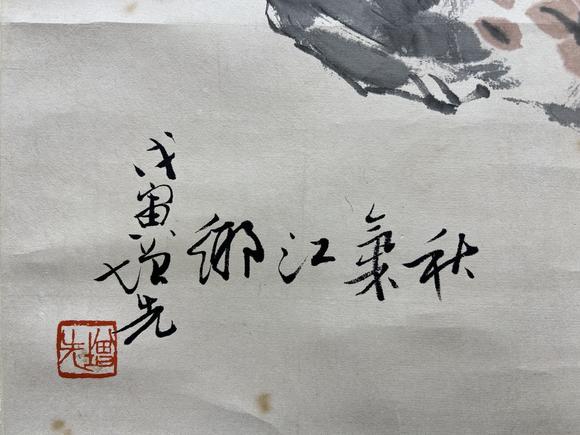 秋氣江鄉
戊寅增先
增先